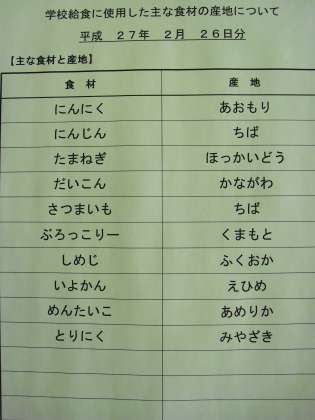 学校給食に使用した主な食材の産地について
平成　２７年　２月　２６日分
【主な食材と産地】
食　材　産　地
にんにく　あおもり
にんじん　ちば
たまねぎ　ほっかいどう
だいこん　かながわ
さつまいも　ちば
ぶろっこりー　くまもと
しめじ　ふくおか
いよかん　えひめ
めんたいこ　あめりか
とりにく　みやざき